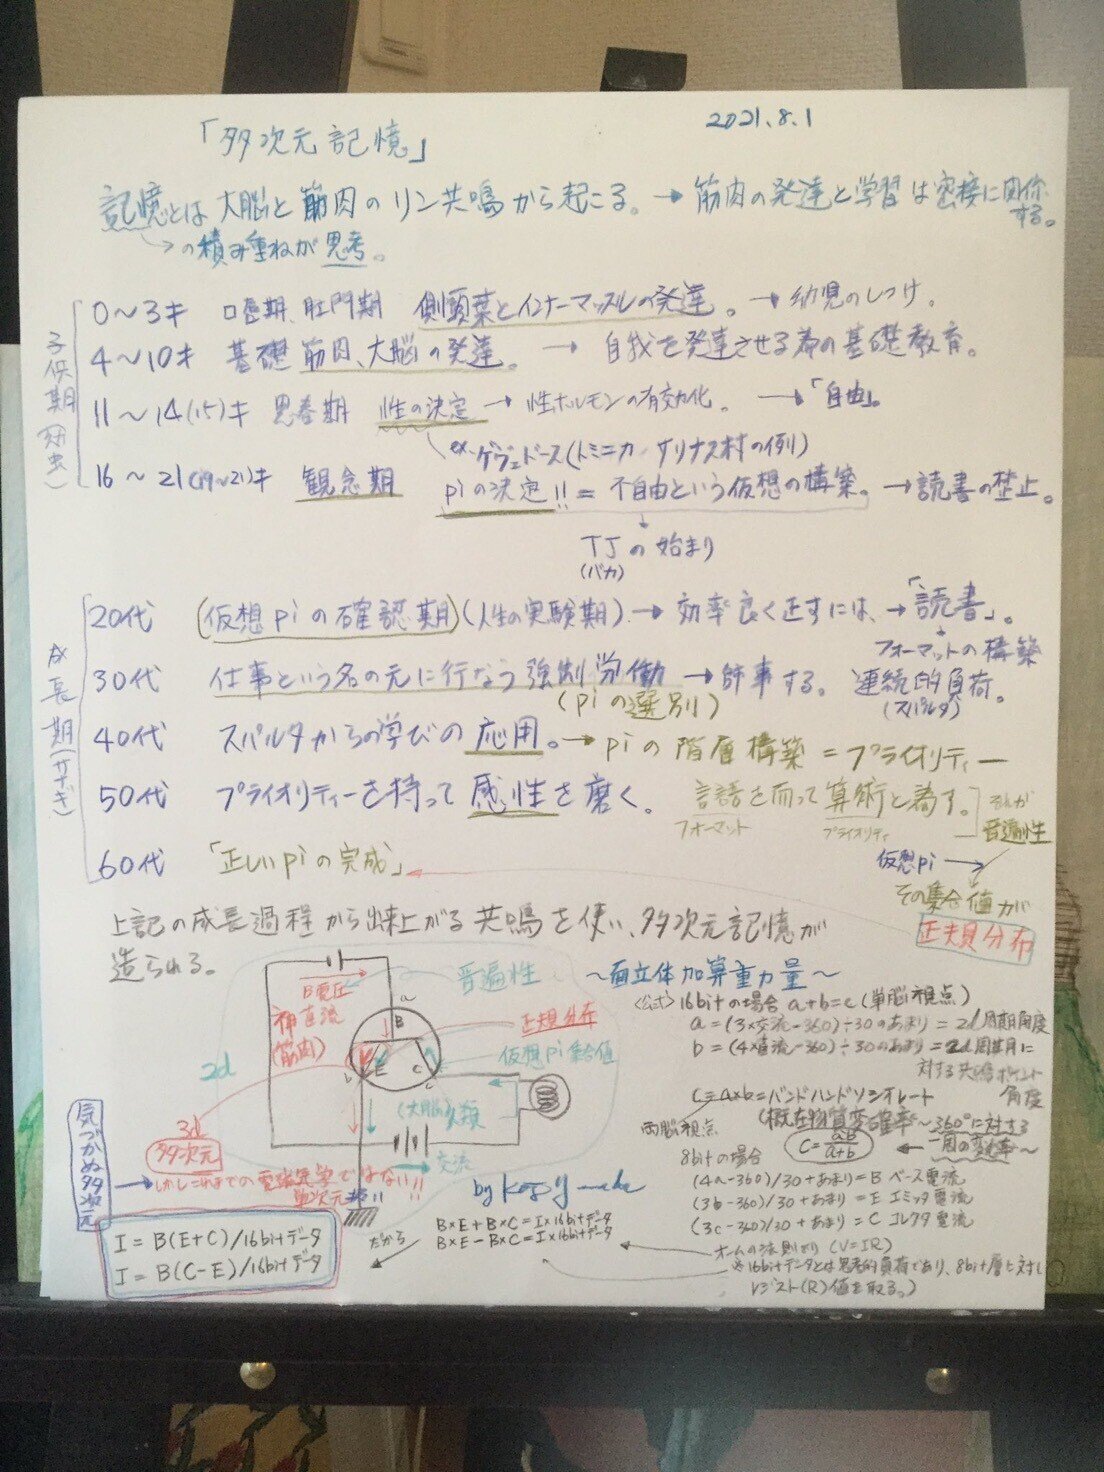 2021.8.1
「多次元記憶」
記憶とは大脳と筋肉のリン共鳴から起こる。→ 筋肉の発達と学習は密接に関係する。
→の積み重ねが思考。
子供期
0〜3才 口唇期、肛門期 側頭葉とインナーマッスルの発達。→ 幼児のしつけ。
4〜10才 基礎筋肉、大脳の発達。→ 自我を発達させる為の基礎教育。
11〜14(15)才 思春期 性の決定 → 性ホルモンの有効化。→「自由」。
ex.ゲヴェドース(ドミニカ サリナス村の例)
16〜21(19〜21)才 観念期 piの決定!! = 不自由という仮想の構築。→読書の禁止。
TJの始まり
(バカ)
成長期(サナギ)
20代 (仮想piの確認期)(人生の実験期) → 効率良く正すには、→「読書」。
フォーマットの構築
30代 仕事という名の元に行なう強制労働 → 師事する。連続的負荷。
(piの選別) (スパルタ)
40代 スパルタからの学びの応用。→ piの階層構築 = プライオリティー
50代 プライオリティーを持って感性を磨く。 言語を而って算術と為す。 それが
フォーマット プライオリティ 普遍性
60代 「正しいpiの完成」 仮想pi →
その集合値が
正規分布
上記の成長過程から出来上がる共鳴を使い、多次元記憶が
造られる。
普遍性
B電圧
直流
(筋肉)
B
E
C
正規分布
仮想pi集合値
2d
(大脳)
交流
3d
多次元
気づかぬ多次元
→しかしこれまでの電磁気学ではない!!
単次元
〜面立体加算重力量〜
<公式>16bitの場合 a+b=c (単脳視点)
a = (3×交流-360)÷30のあまり = 2d周期角度
b = (4×直流-360)÷30のあまり = 2d周期に
対する共鳴ポイント
角度
c=a×b=バンドハンドソシオレート
両脳視点 (概在物質変確率〜360°に対する
一周の変化率〜
C=ab/a+b
8bitの場合
(4a-360)/30+あまり=B ベース電流
(3b-360)/30+あまり=E エミッタ電流
(3c-360)/30+あまり=C コレクタ電流
B×E+B×C=I×16bitデータ
B×E-B×C=I×16bitデータ
だから
I = B(E+C)/16bitデータ
I = B(C-E)/16bitデータ
オームの法則より (V=IR)
※16bitデータとは思考的負荷であり、8bit層に対し
レジスト(R)値を取る。)